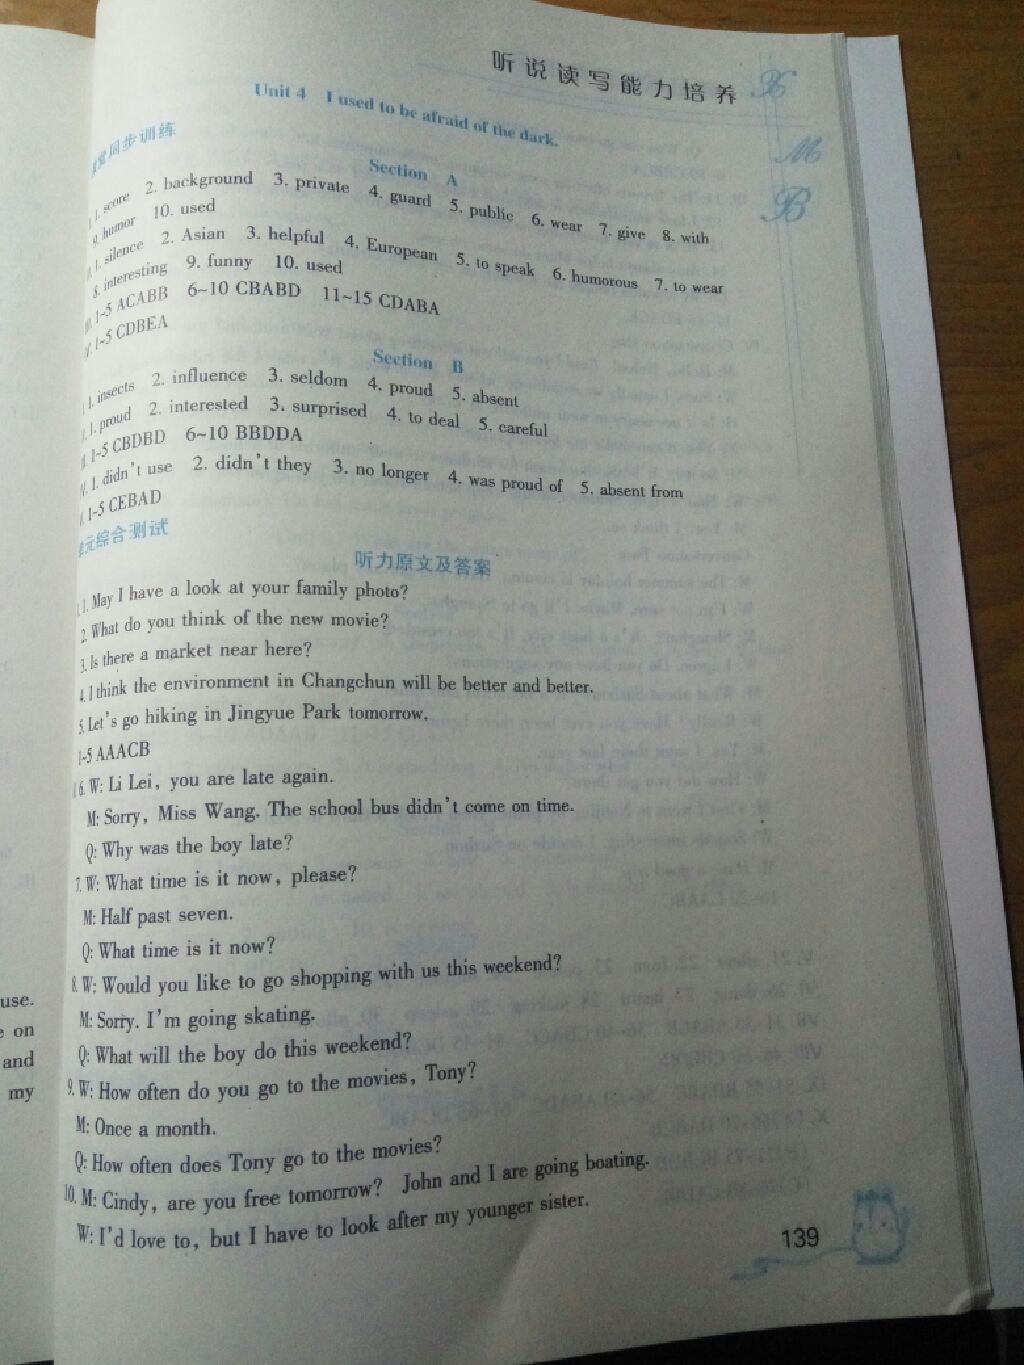 听说读写能力培养
X
M
B
Unit 4 I used to be afraid of the dark.
同步训练
Section A
1. score 2. background 3. private 4. guard 5. public 6. wear 7. give 8. with
9. humor 10. used
1. silence 2. Asian 3. helpful 4. European 5. to speak 6. humorous 7. to wear
8. interesting 9. funny 10. used
1~5 ACABB 6~10 CBABD 11~15 CDABA
1~5 CDBEA
Section B
1. insects 2. influence 3. seldom 4. proud 5. absent
1. proud 2. interested 3. surprised 4. to deal 5. careful
1~5 CBDBD 6~10 BBDDA
1. didn't use 2. didn't they 3. no longer 4. was proud of 5. absent from
1~5 CEBAD
元综合测试
听力原文及答案
1. May I have a look at your family photo?
2. What do you think of the new movie?
3. Is there a market near here?
4. I think the environment in Changchun will be better and better.
5. Let's go hiking in Jingyue Park tomorrow.
1~5 AAACB
6. W: Li Lei, you are late again.
M: Sorry, Miss Wang. The school bus didn't come on time.
Q: Why was the boy late?
7. W: What time is it now, please?
M: Half past seven.
Q: What time is it now?
8. W: Would you like to go shopping with us this weekend?
M: Sorry. I'm going skating.
Q: What will the boy do this weekend?
9. W: How often do you go to the movies, Tony?
M: Once a month.
Q: How often does Tony go to the movies?
10. M: Cindy, are you free tomorrow? John and I are going boating.
W: I'd love to, but I have to look after my younger sister.
139
use.
on
and
my